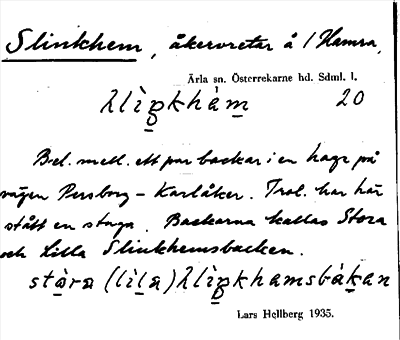 Slinkhem, åkervretar å 1 Hamra,
Ärla sn. Österrekarne hd. Sdml. l.
20
Bel. mell. ett par backar i en hage på
vägen Persborg – Karlåker. Trol. har här
stått en stuga. Backarna kallas Stora
och Lilla Slinkhemsbacken.
Lars Hellberg 1935.